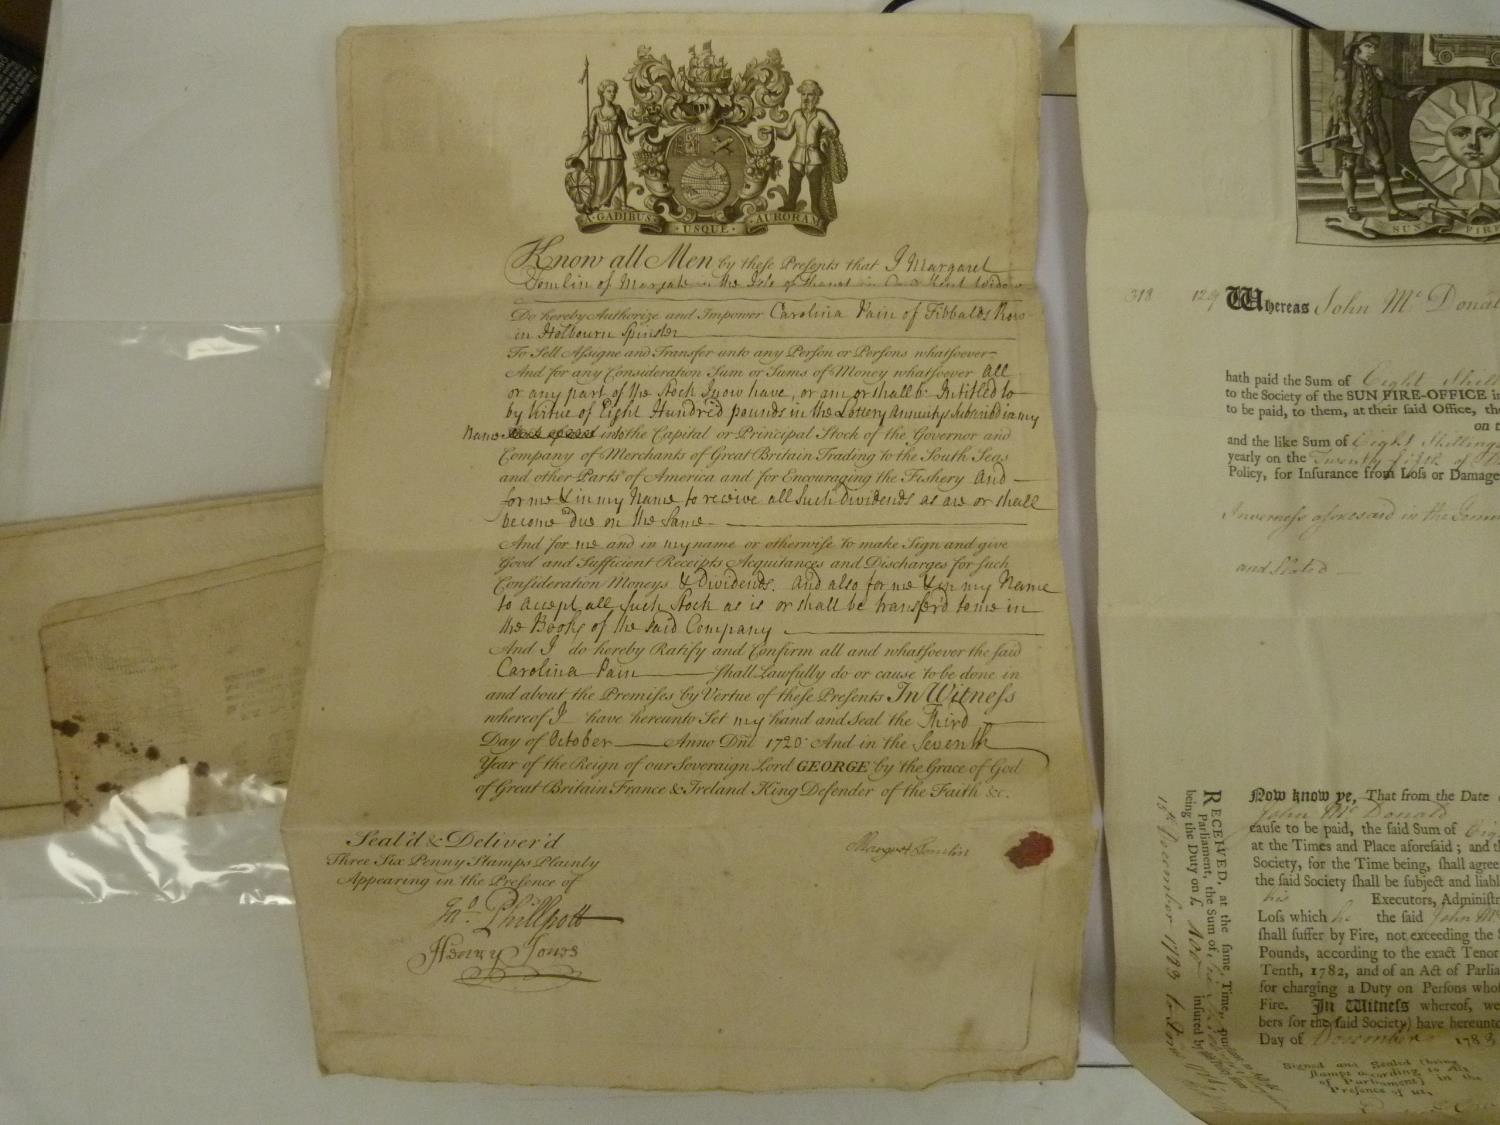 A·GADIBUS· ·USQUE· ·AURORAM
Know all Men by these Presents that I Margaret
Tomlin of Margate in the Isle of Thanet in Com Kent Widow
Do hereby Authorize and Impower Carolina Pain of Tibbalds Row
in Holbourn Spinster
To Sell Assigne and Transfer unto any Person or Persons whatsoever
And for any Consideration Sum or Sums of Money whatsoever all
or any part of the Stock I now have, or am or shall be Intitled to
by Virtue of Eight Hundred pounds in the Lottery Annuitys Subscribed in my
Name into the Capital or Principal Stock of the Governor and
Company of Merchants of Great Britain Trading to the South Seas
and other Parts of America and for Encouraging the Fishery And
for me & in my Name to receive all such Dividends as are or shall
become due on the Same
And for me and in my name or otherwise to make Sign and give
Good and Sufficient Receipts Acquitances and Discharges for such
Consideration Moneys & Dividends. And also for me & in my Name
to accept all such Stock as is or shall be transfer'd to me in
the Books of the said Company
And I do hereby Ratify and Confirm all and whatsoever the said
Carolina Pain Shall Lawfully do or cause to be done in
and about the Premises by Vertue of these Presents In Witness
whereof I have hereunto Set my hand and Seal the Third
Day of October Anno Dni 1720 And in the Seventh
Year of the Reign of our Soveraign Lord GEORGE by the Grace of God
of Great Britain France & Ireland King Defender of the Faith &c.
Seal'd & Deliver'd
Three Six Penny Stamps Plainly
Appearing in the Presence of
Jno. Phillpott
Henry Jones
Margret Tomlin
SUN FIRE
318 129 Whereas John Mc Donald
hath paid the Sum of Eight
to the Society of the SUN FIRE-OFFICE in
to be paid, to them, at their said Office, the
on t
and the like Sum of Eight Shillings
yearly on the Twenty fifth of
Policy, for Insurance from Loss or Damage
Inverness aforesaid in the
and Slated
Now know ye, That from the Date
John Mc Donald
cause to be paid, the said Sum of Eig
at the Times and Place aforesaid; and th
Society, for the Time being, shall agree
the said Society shall be subject and liabl
his Executors, Administr
Loss which he the said John Mc
shall suffer by Fire, not exceeding the S
Pounds, according to the exact Tenor
Tenth, 1782, and of an Act of Parlia
for charging a Duty on Persons whos
Fire. In Witness whereof, we
bers for the said Society) have hereunto
Day of December 1783
Signed and Sealed (being
Stamps according to
of Parliament) in the
Presence of us,
RECEIVED, at the same Time,
Parliament, the Sum of
being the Duty on £ insured by
15th December 1783 to